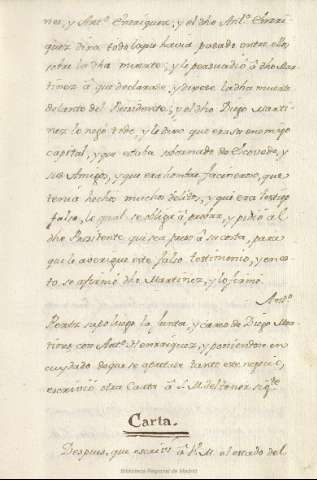 nez, y Ant.º Enrriquez; y el dho Ant.º Enrri-
quez dixo todo lo que havia pasado entre ellos
sobre la dha muerte; y le persuadió á dho Mar-
tinez á que declarase, y dixese la dha muerte
delante del Presidente; y el dho Diego Marti-
nez lo negó todo, y le dixo que era su enemigo
capital, y que estaba sobornado de Escovedo, y
sus Amigos, y que era hombre facineroso, que
tenia hechos muchos delitos, y que era testigo
falso, lo qual se obligó á probar, y pidió al
dho Presidente que sea preso á su costa, para
que le averigue este falso testimonio, y en es-
to se afirmó dho Martinez, y lo firmó.
Ant.º
Perez supo luego la Junta, y careo de Diego Mar-
tinez con Ant.º Henrriquez, y poniendose en
cuydado de que se apretase tanto este negocio,
escrivió otra Carta á S. M. del tenor sig.te
Carta.
Despues, que escriví á V.M. el estado del
Biblioteca Regional de Madrid